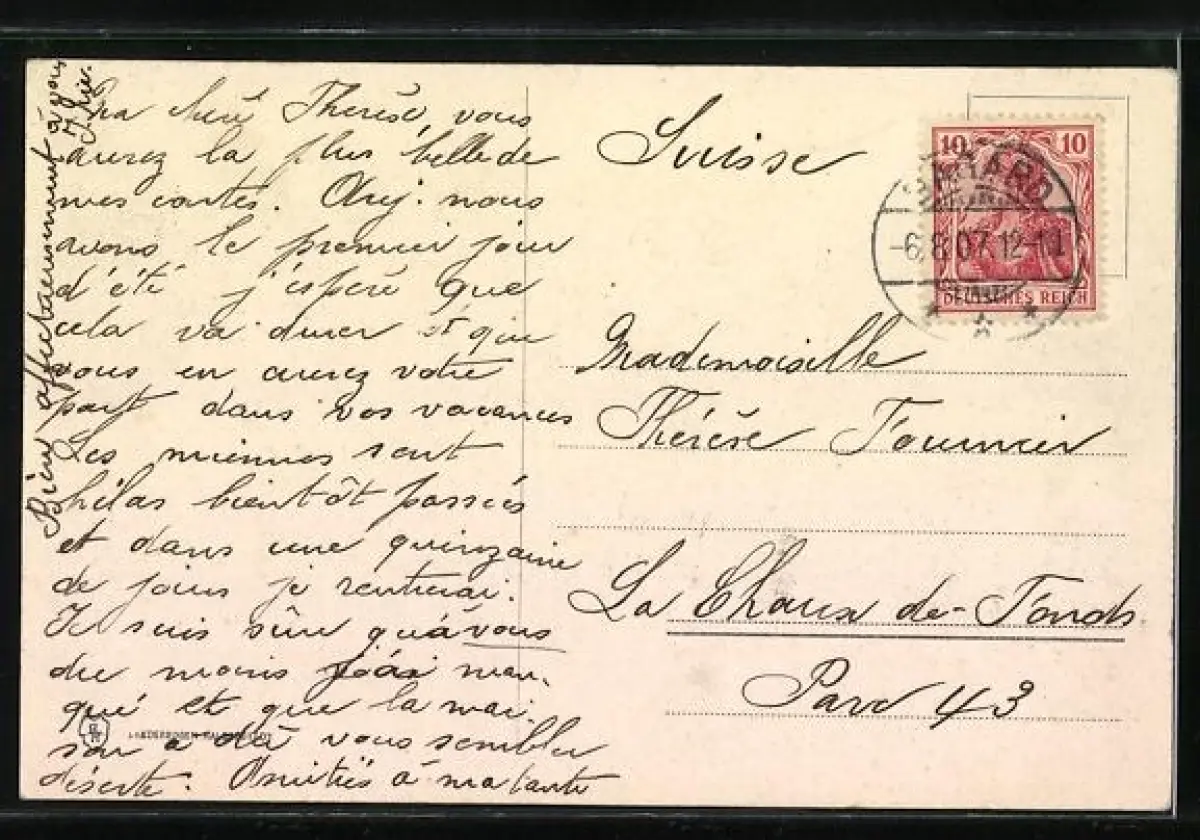 Ma chère Thérèse, vous
aurez la plus belle de
mes cartes. Auj. nous
avons le premier jour
d'été j'espère que
cela va durer et que
vous en aurez votre
part dans vos vacances
Les miennes sont
hélas bientôt passées
et dans une quinzaine
de jours je rentrerai.
Je suis sûre qu'à vous
du moins j'ai man-
qué et que la mai-
son a dû vous sembler
déserte. Amitiés à ma tante
Bien affectueusement à vous
Suisse
10 10
-6.8.07.12-1
DEUTSCHES REICH
Mademoiselle
Thérèse Fournier
La Chaux-de-Fonds
Parc 43